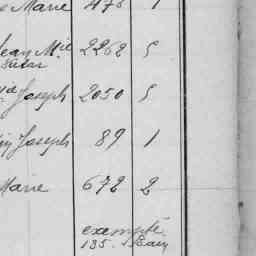 Marie 478 1
Jean Mie 2262 5
Joseph 2050 5
Joseph 89 1
Marie 672 2
exempté
135.